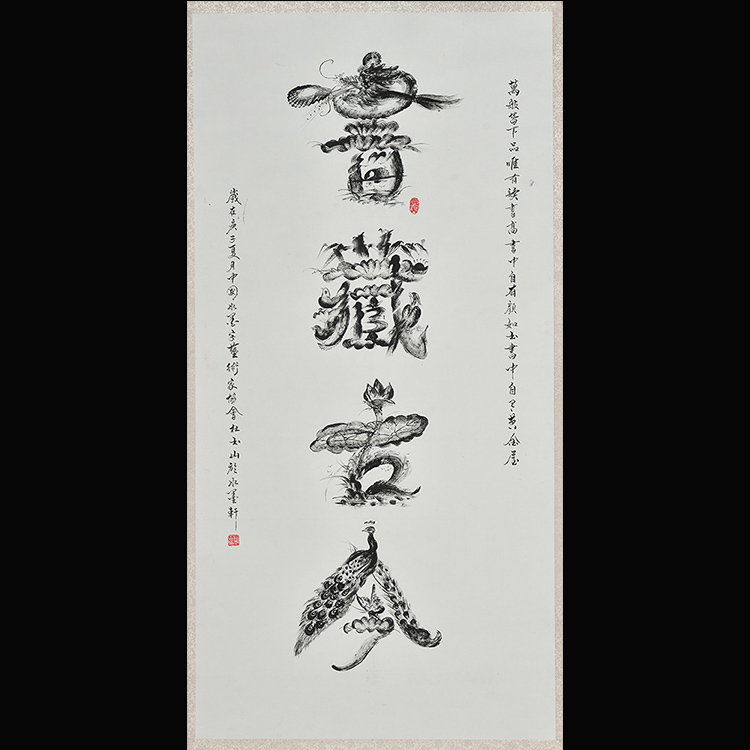 萬般皆下品唯有讀書高書中自有顏如玉書中自有黃金屋
書藏古今
歲在庚子夏月中國水墨字藝術家協會杜玉山於水墨軒